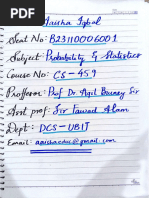 Anisha Iqbal
Seat No: B23110006001
Subject: Probability & Statistics
Course No: CS-459
Proffesor: Prof. Dr. Aqil Burney Sir
Asst prof: Sir Fawad Alam
Dept: DCS-UBIT
Email: anishaedu@gmail.com